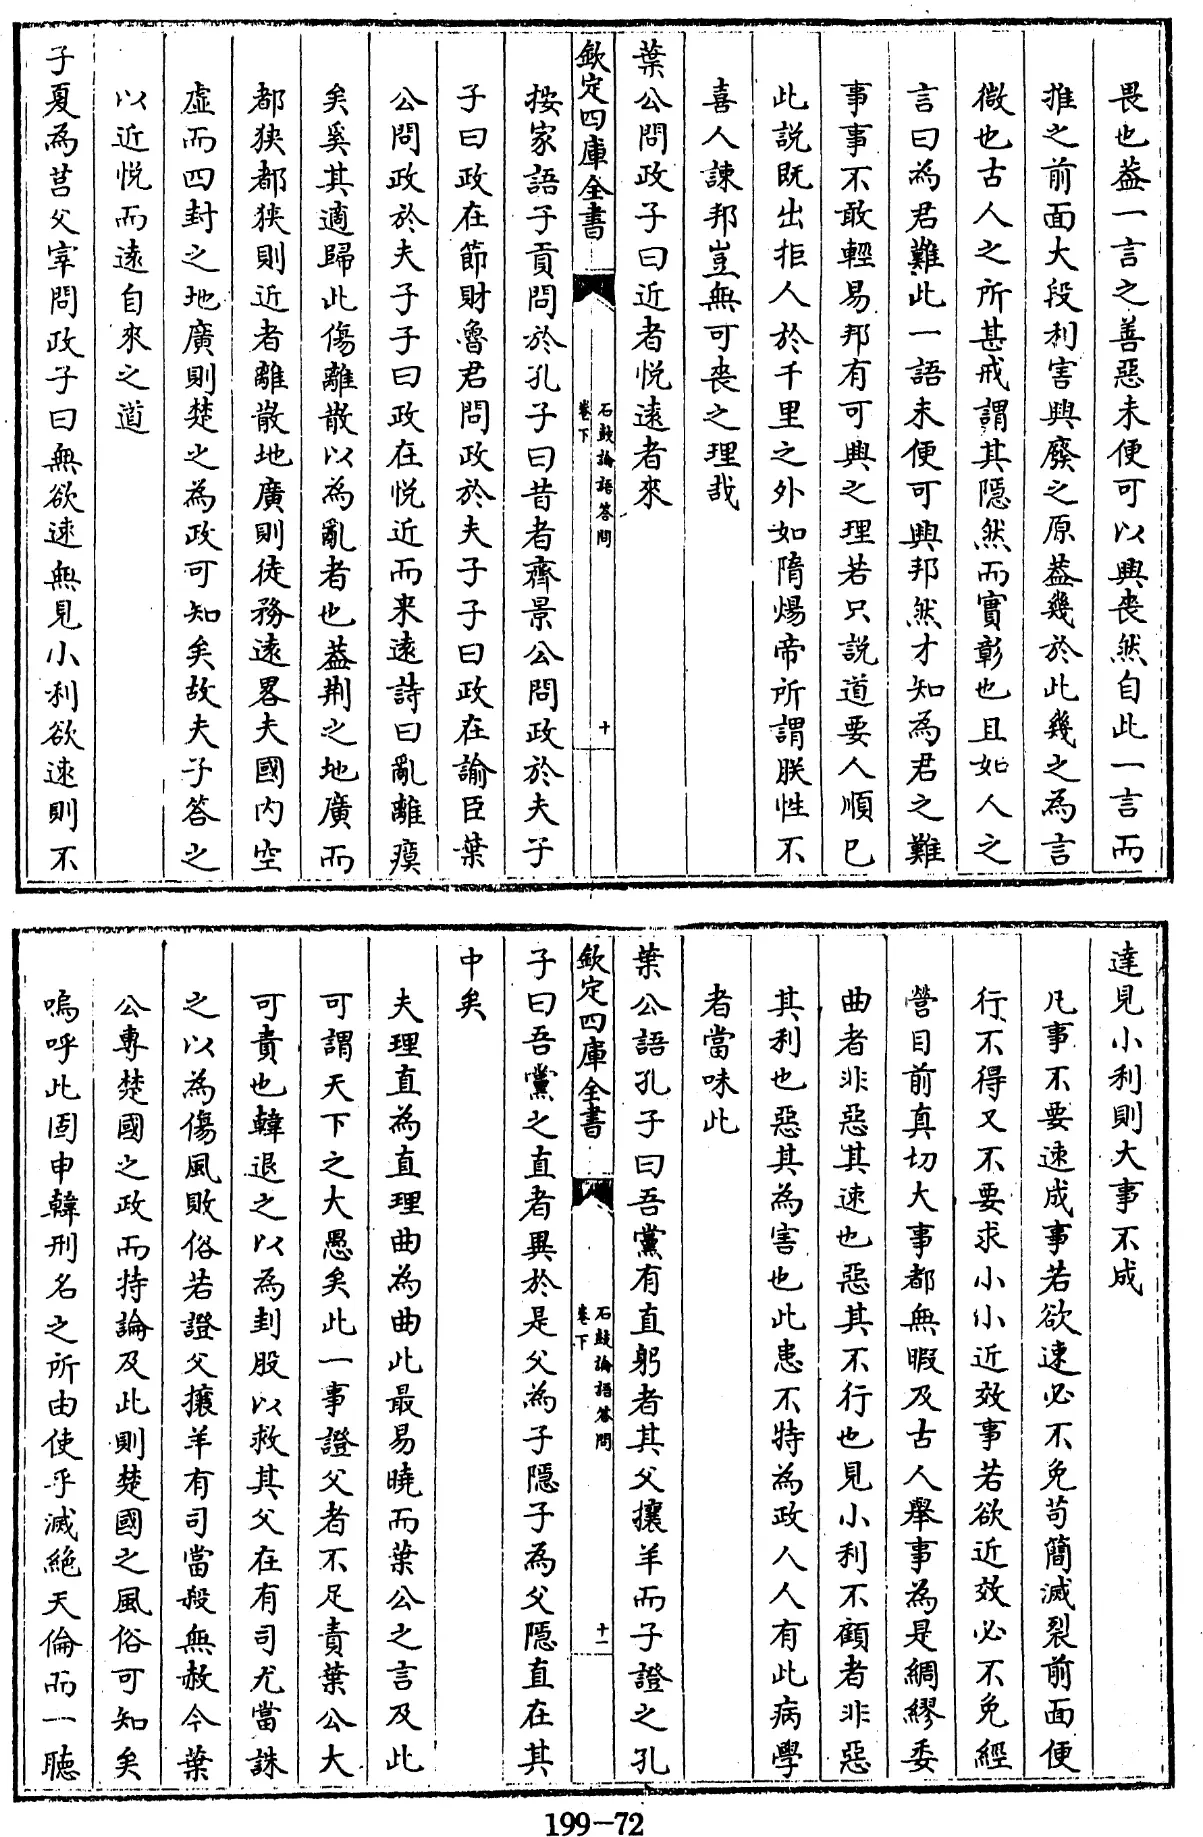 畏也葢一言之善惡未便可以興喪然自此一言而
推之前面大段利害興廢之原葢幾於此幾之為言
微也古人之所甚戒謂其隱然而實彰也且如人之
言曰為君難此一語未便可興邦然才知為君之難
事事不敢輕易邦有可興之理若只説道要人順已
此説既出拒人於千里之外如隋煬帝所謂朕性不
喜人諫邦豈無可喪之理哉
葉公問政子曰近者悅遠者來
欽定四庫全書
石鼓論語答問
卷下
十
按家語子貢問於孔子曰昔者齊景公問政於夫子
子曰政在節財魯君問政於夫子子曰政在諭臣葉
公問政於夫子子曰政在悅近而来遠詩曰亂離瘼
矣奚其適歸此傷離散以為亂者也葢荆之地廣而
都狹都狹則近者離散地廣則徒務遠畧夫國内空
虛而四封之地廣則楚之為政可知矣故夫子答之
以近悅而遠自來之道
子夏為莒父宰問政子曰無欲速無見小利欲速則不
達見小利則大事不成
凡事不要速成事若欲速必不免苟簡滅裂前面便
行不得又不要求小小近效事若欲近效必不免經
營目前真切大事都無暇及古人舉事為是綢繆委
曲者非惡其速也惡其不行也見小利不顧者非惡
其利也惡其為害也此患不特為政人人有此病學
者當味此
葉公語孔子曰吾黨有直躬者其父攘羊而子證之孔
欽定四庫全書
石鼓論語答問
卷下
十一
子曰吾黨之直者異於是父為子隱子為父隱直在其
中矣
夫理直為直理曲為曲此最易曉而葉公之言及此
可謂天下之大愚矣此一事證父者不足責葉公大
可責也韓退之以為刲股以救其父在有司尤當誅
之以為傷風敗俗若證父攘羊有司當殺無赦今葉
公專楚國之政而持論及此則楚國之風俗可知矣
嗚呼此固申韓刑名之所由使乎滅絶天倫而一聽
199-72